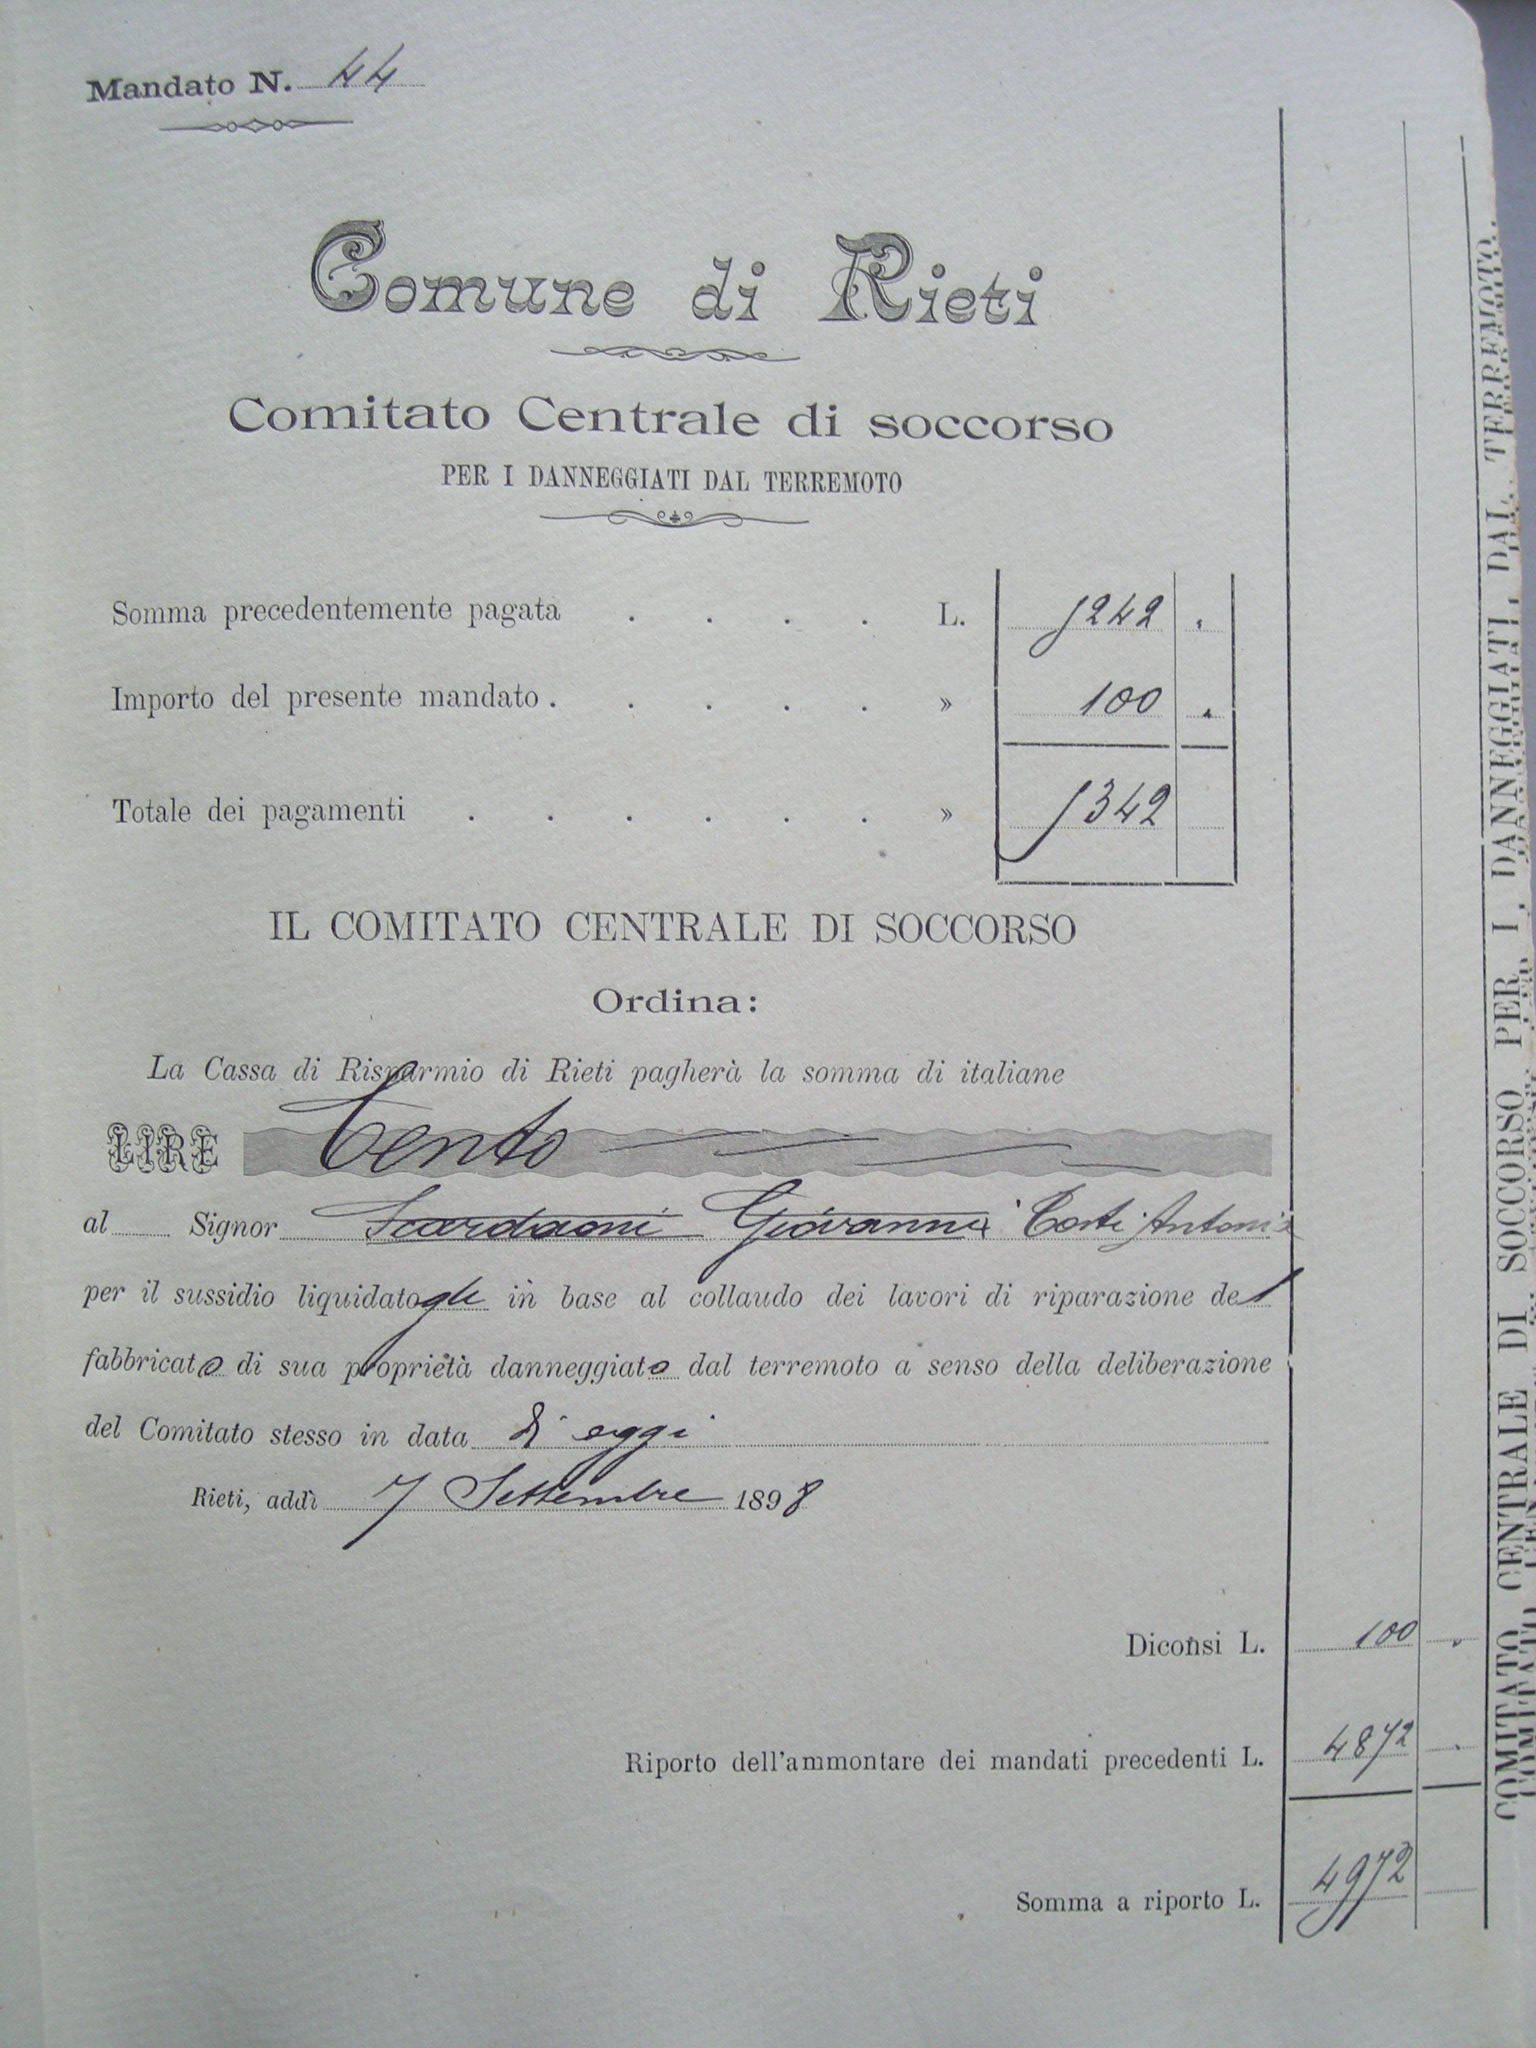 Mandato N. 44
Comune di Rieti
Comitato Centrale di soccorso
PER I DANNEGGIATI DAL TERREMOTO
Somma precedentemente pagata . . . . L. 1242 "
Importo del presente mandato . . . . . » 100 "
Totale dei pagamenti . . . . . . » 1342
IL COMITATO CENTRALE DI SOCCORSO
Ordina:
La Cassa di Risparmio di Rieti pagherà la somma di italiane
LIRE Cento
al Signor Scardaoni Giovanni Conti Antonia
per il sussidio liquidatogli in base al collaudo dei lavori di riparazione del
fabbricato di sua proprietà danneggiato dal terremoto a senso della deliberazione
del Comitato stesso in data d'oggi
Rieti, addì 7 Settembre 1898
Diconsi L. 100 "
Riporto dell'ammontare dei mandati precedenti L. 4872 "
Somma a riporto L. 4972
COMITATO CENTRALE DI SOCCORSO PER I DANNEGGIATI DAL TERREMOTO.